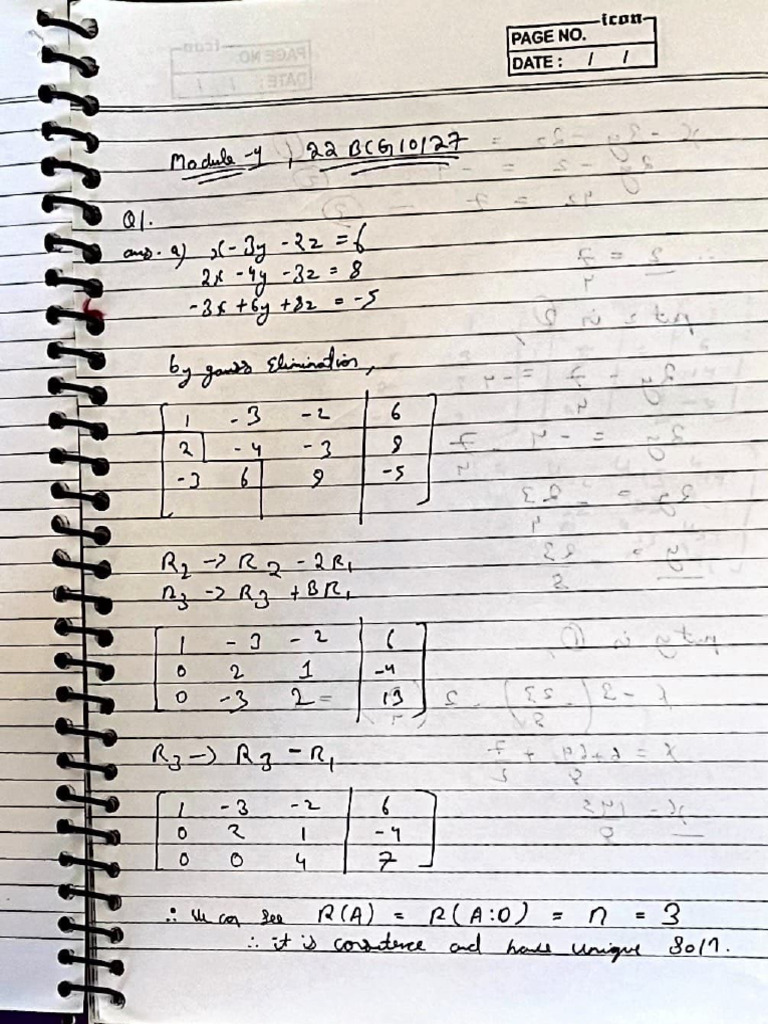 icon
PAGE NO.
DATE : / /
Module-4, 22BCG10127
Q1.
ans. a) x - 3y - 2z = 6
2x - 4y - 3z = 8
-3x + 6y + 8z = -5
by gauss Elimination,
1 -3 -2 | 6
2 -4 -3 | 8
-3 6 8 | -5
R2 -> R2 - 2R1
R3 -> R3 + 3R1
1 -3 -2 | 6
0 2 1 | -4
0 -3 2 | 13
R3 -> R3 - R1
1 -3 -2 | 6
0 2 1 | -4
0 0 4 | 7
∴ We can see R(A) = R(A:0) = n = 3
∴ it is consitence and have unique Soln.